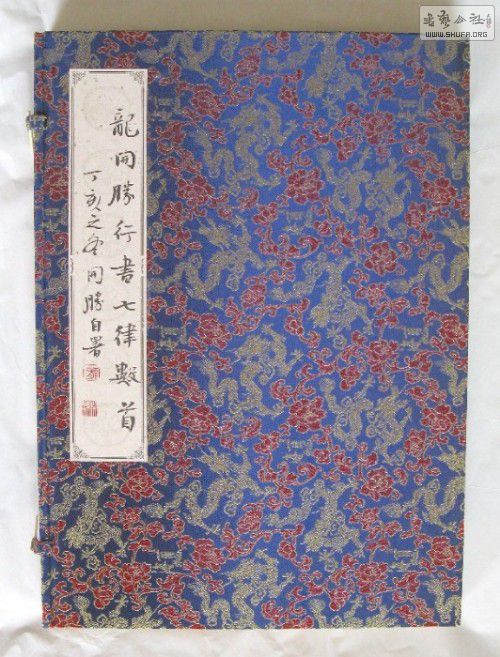 龍開勝行書七律數首
丁亥之冬開勝自署
書藝公社
WWW.SHUFA.ORG